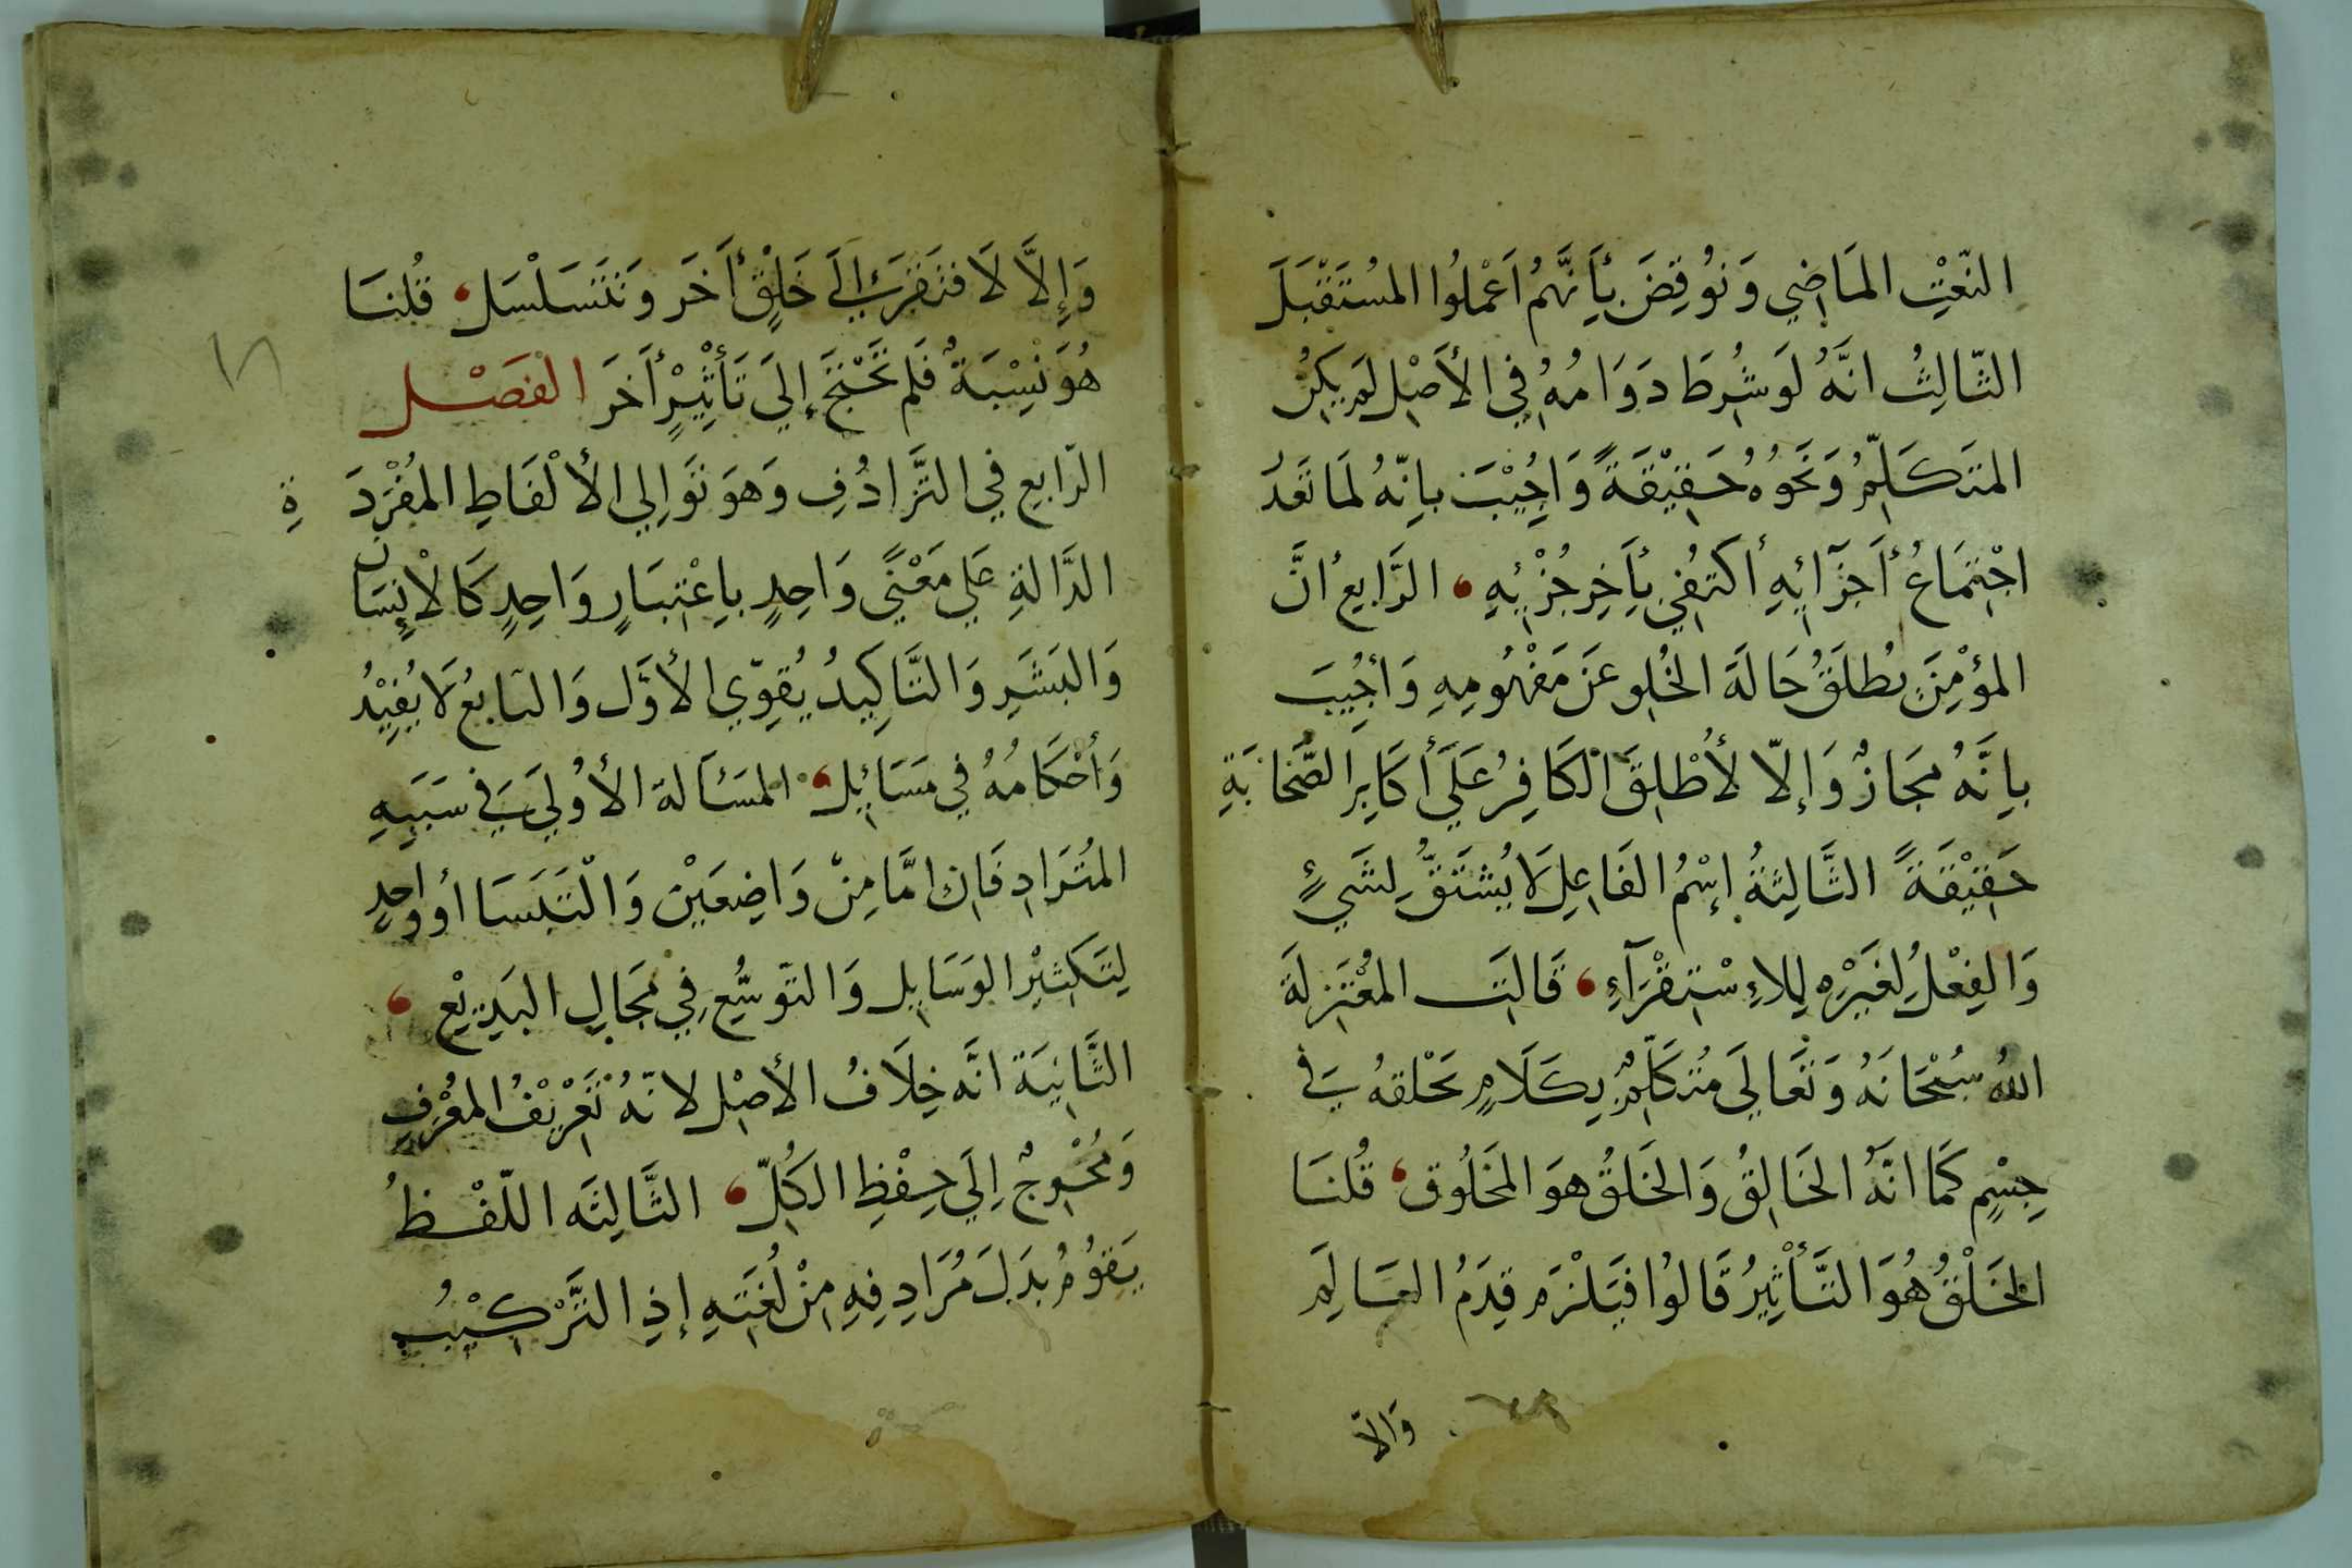 النّعْتِ المَاضِي وَنُوقِضَ بأَنَّهُم اَعْمَلُوا المُسْتَقْبَلَ
الثّالِثُ انَّهُ لَو شُرِطَ دَوَامُهُ فِي الأَصْلِ لَم يَكِنُ
المتَكَلِّمُ وَنَحْوُهُ حَقِيْقَةً وَاجُيْبَ باِنّهُ لمَا تَعَدُ
اجْتِمَاعُ أَجزَآئِهِ أكتُفِي بأَخِرِ جُزْئِهِ الرَّابِعُ انَّ
المؤْمِنَ يُطلَقُ حَالَةَ الخُلِو عَن مَفْهُومِهِ وَأجُيبَ
باِنَّهُ مجَازٌ وَإلاّ لأُطْلِقَ الكَافِرُ عَلَي أَكَابِرِ الصَّحَابَةِ
حَقِيْقَةً الثَّالِثةُ إسْمُ الفَاعِلِ لَا يُشْتَقُّ لِشَيءٍ
وَالفِعْلُ لِغَيْرِهِ لِلاِسْتِقْرَآءِ قَالَت المُعْتَزِلَة
اللهُ سُبْحَانَهُ وَتَعَالَي مُتَكَلِّمٌ بِكَلَامٍ يَخْلقهُ فِي
جِسْمٍ كَمَا انَّهُ الخَالِقُ وَالخَلقُ هوَ المَخلُوق قُلنَا
الخَلْقُ هُوَ التَّأثِيرُ قَالوُا فيَلْزَم قِدَمُ العَالَمِ
وَالاّ
وَإلاَّ لَافتَقَرَ إلَى خَلْقٍ أَخَر وَتَتَسَلْسَل قُلنَا
هُوَ نِسْبَةٌ فَلم تَحْتَجْ إلَي تَأثِيْرٍ أَخَرَ الفَصْل
الرّابع في التَّرَادُفِ وَهوَ تَوَالِي الألْفَاظِ المُفْرَدَةِ
الدَّالةِ عَلي مَعْنًى وَاحِدٍ باِعْتِبَارٍ وَاحِدٍ كَالأنِسَان
وَالبَشَرِ وَالتَّاكِيدُ يُقوِّي الأوَّل وَالتابعُ لَا يُفِيْدُ
وَأحْكَامُهُ في مَسَائِل المسَألة الأوُلَي في سَبَبِهِ
المُتَرَادِفَان امَّا مِنْ وَاضِعَيْن وَالْتَبَسَا أو وَاحِدٍ
لِتَكثيْر الوَسَايِل وَالتّوسُّع فِي مجَالِ البَدِيْع
الثَّانِيَة انَّه خِلَافُ الأصْل لانّهُ تَعْرِيْفُ المعُرَّفِ
وَمُحْوِجٌ اِلَي حِفْظِ الكُلِّ الثَّالِثَه اللّفْظ
يَقوُمُ بدَلَ مُرَادِفِهِ مِنْ لُغَتِهِ إذِ التَّرْكِيْبُ